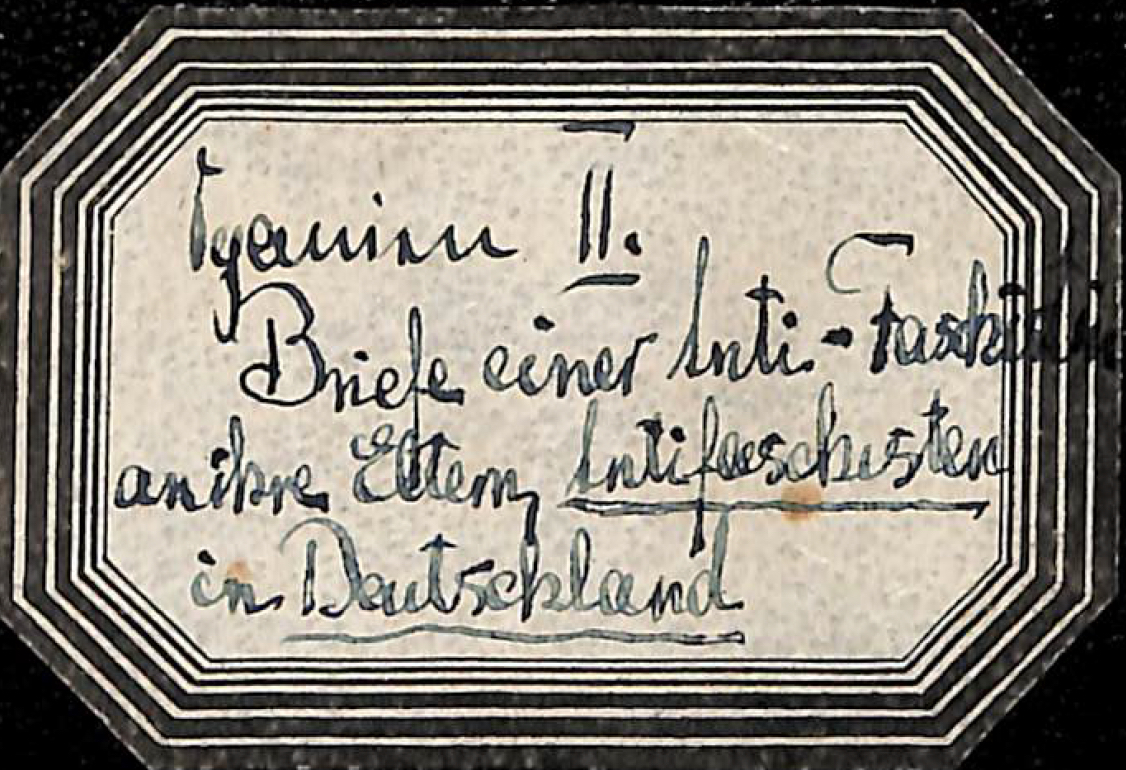 Spanien II.
Briefe einer Anti-Faschistin
an ihre Eltern, Antifaschisten
in Deutschland